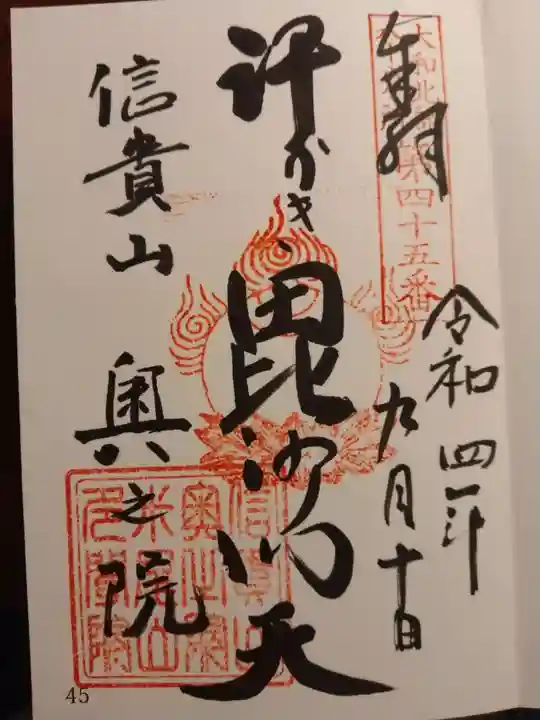 奉拝
令和四年
九月十日
第四十五番
汗かき
毘沙門天
信貴山 奥之院
45